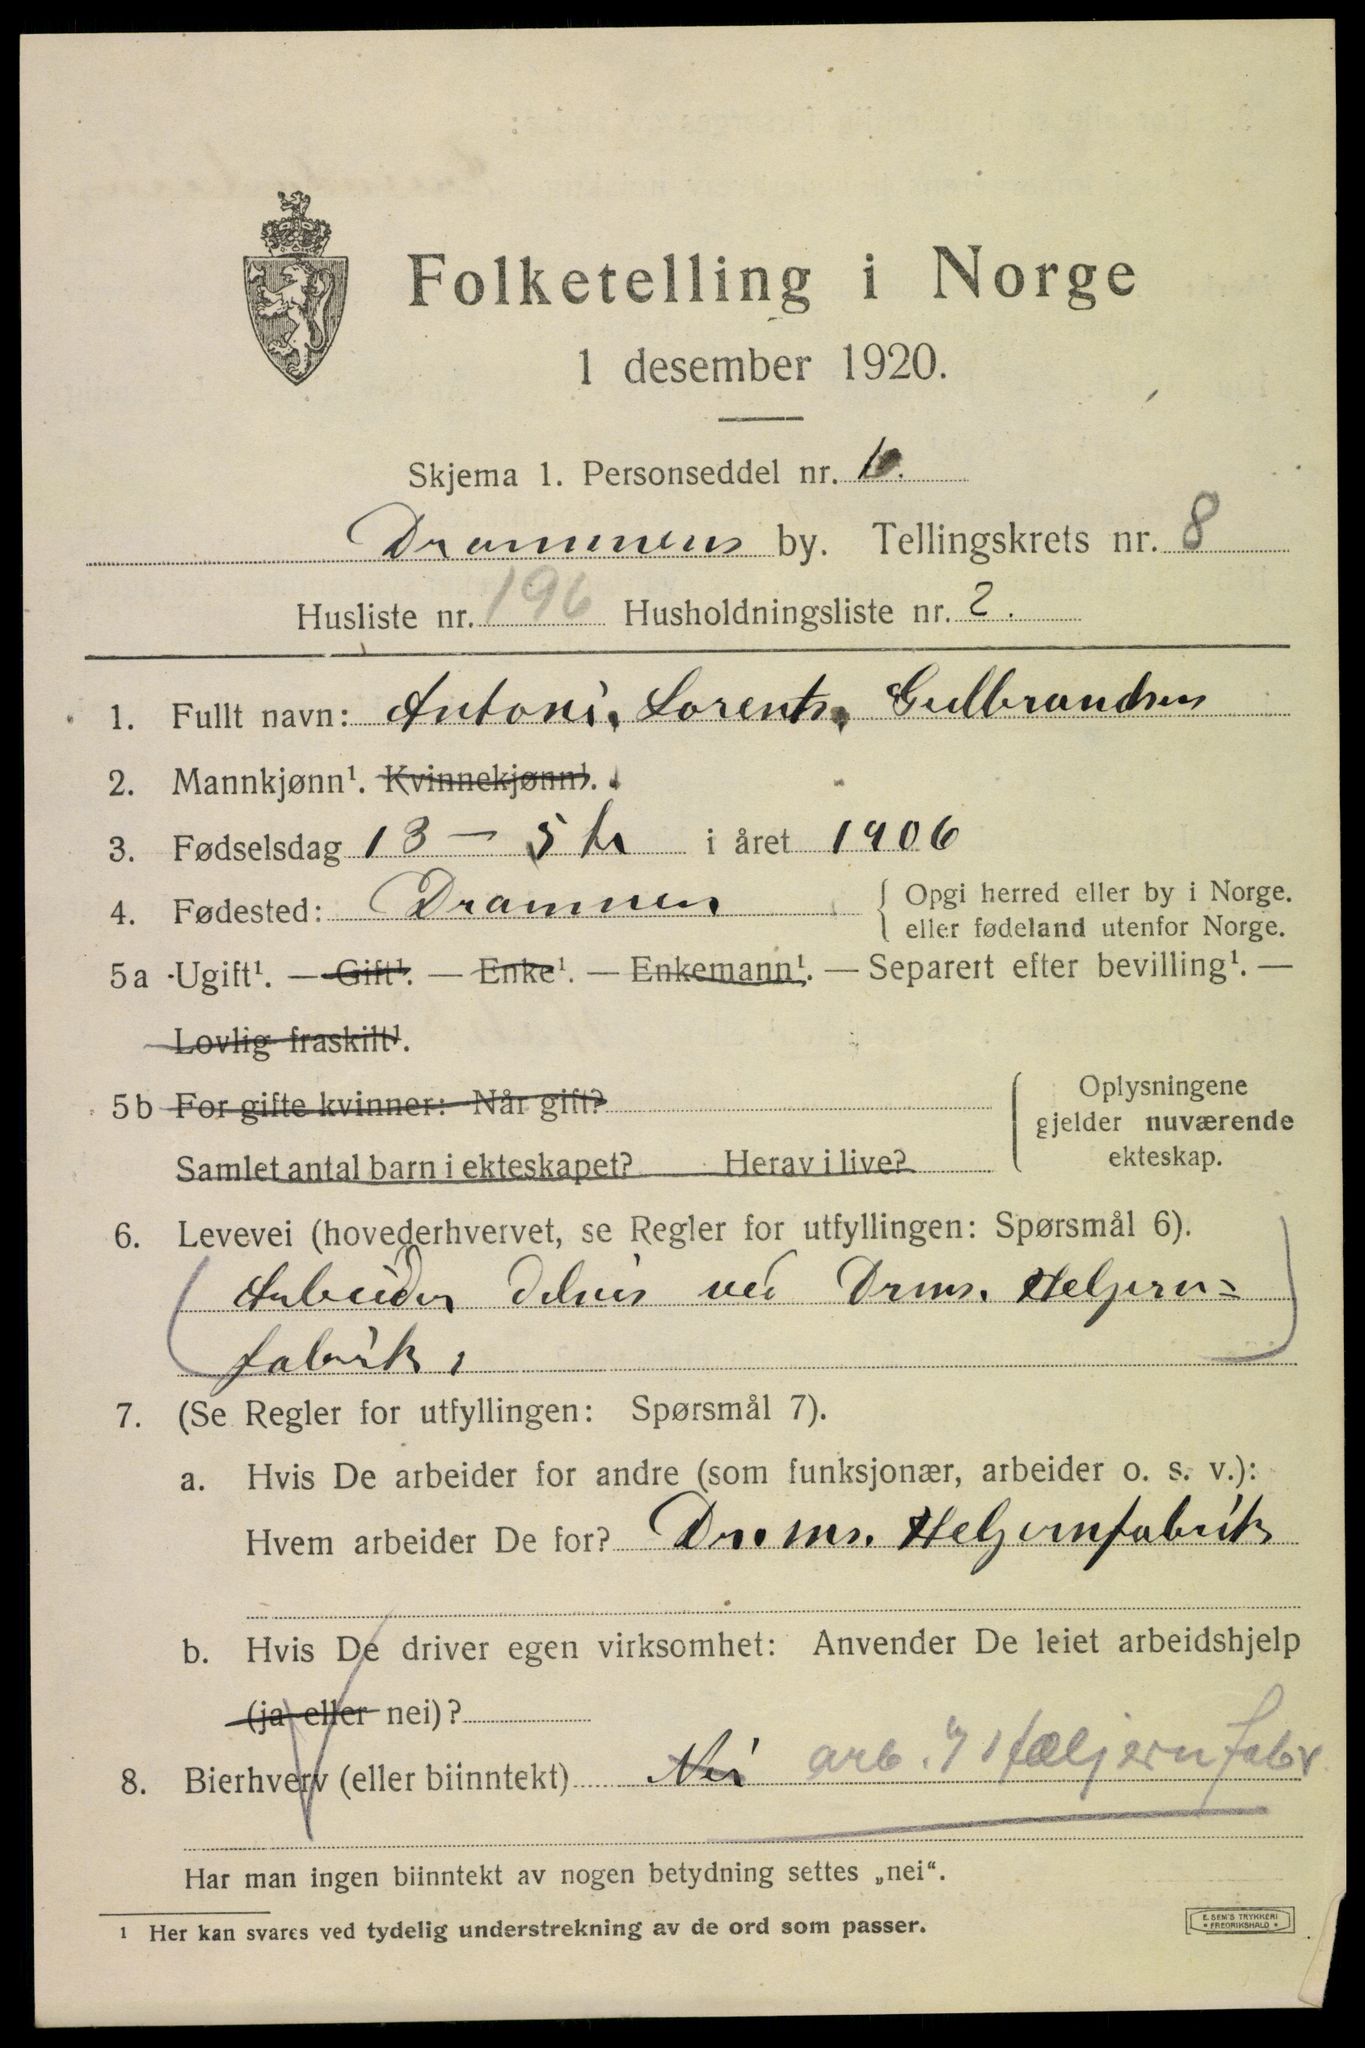 Folketelling i Norge
1 desember 1920.
Skjema 1. Personseddel nr.
Drammens by. Tellingskrets nr. 8
Husliste nr. 196 Husholdningsliste nr. 2.
1. Fullt navn: Antoni. Lorents. Gulbrandsen
2. Mannkjønn¹. Kvinnekjønn¹.
3. Fødselsdag 13 - 5 i året 1906
4. Fødested: Drammen { Opgi herred eller by i Norge.
eller fødeland utenfor Norge.
5a Ugift¹. — Gift¹. — Enke¹. — Enkemann¹. — Separert efter bevilling¹. —
Lovlig fraskilt¹.
5b For gifte kvinner: Når gift?
Samlet antal barn i ekteskapet? Herav i live?
Oplysningene
gjelder nuværende
ekteskap.
6. Levevei (hovederhvervet, se Regler for utfyllingen: Spørsmål 6).
Arbeider ved Drms. Heljern=
fabrik,
7. (Se Regler for utfyllingen: Spørsmål 7).
a. Hvis De arbeider for andre (som funksjonær, arbeider o. s. v.):
Hvem arbeider De for? Dr.ms. Heljernfabrik
b. Hvis De driver egen virksomhet: Anvender De leiet arbeidshjelp
(ja eller nei)?
8. Bierhverv (eller biinntekt) Nei arb.
Har man ingen biinntekt av nogen betydning settes „nei“.
¹ Her kan svares ved tydelig understrekning av de ord som passer.
E. SEM'S TRYKKERI
* FREDRIKSHALD *